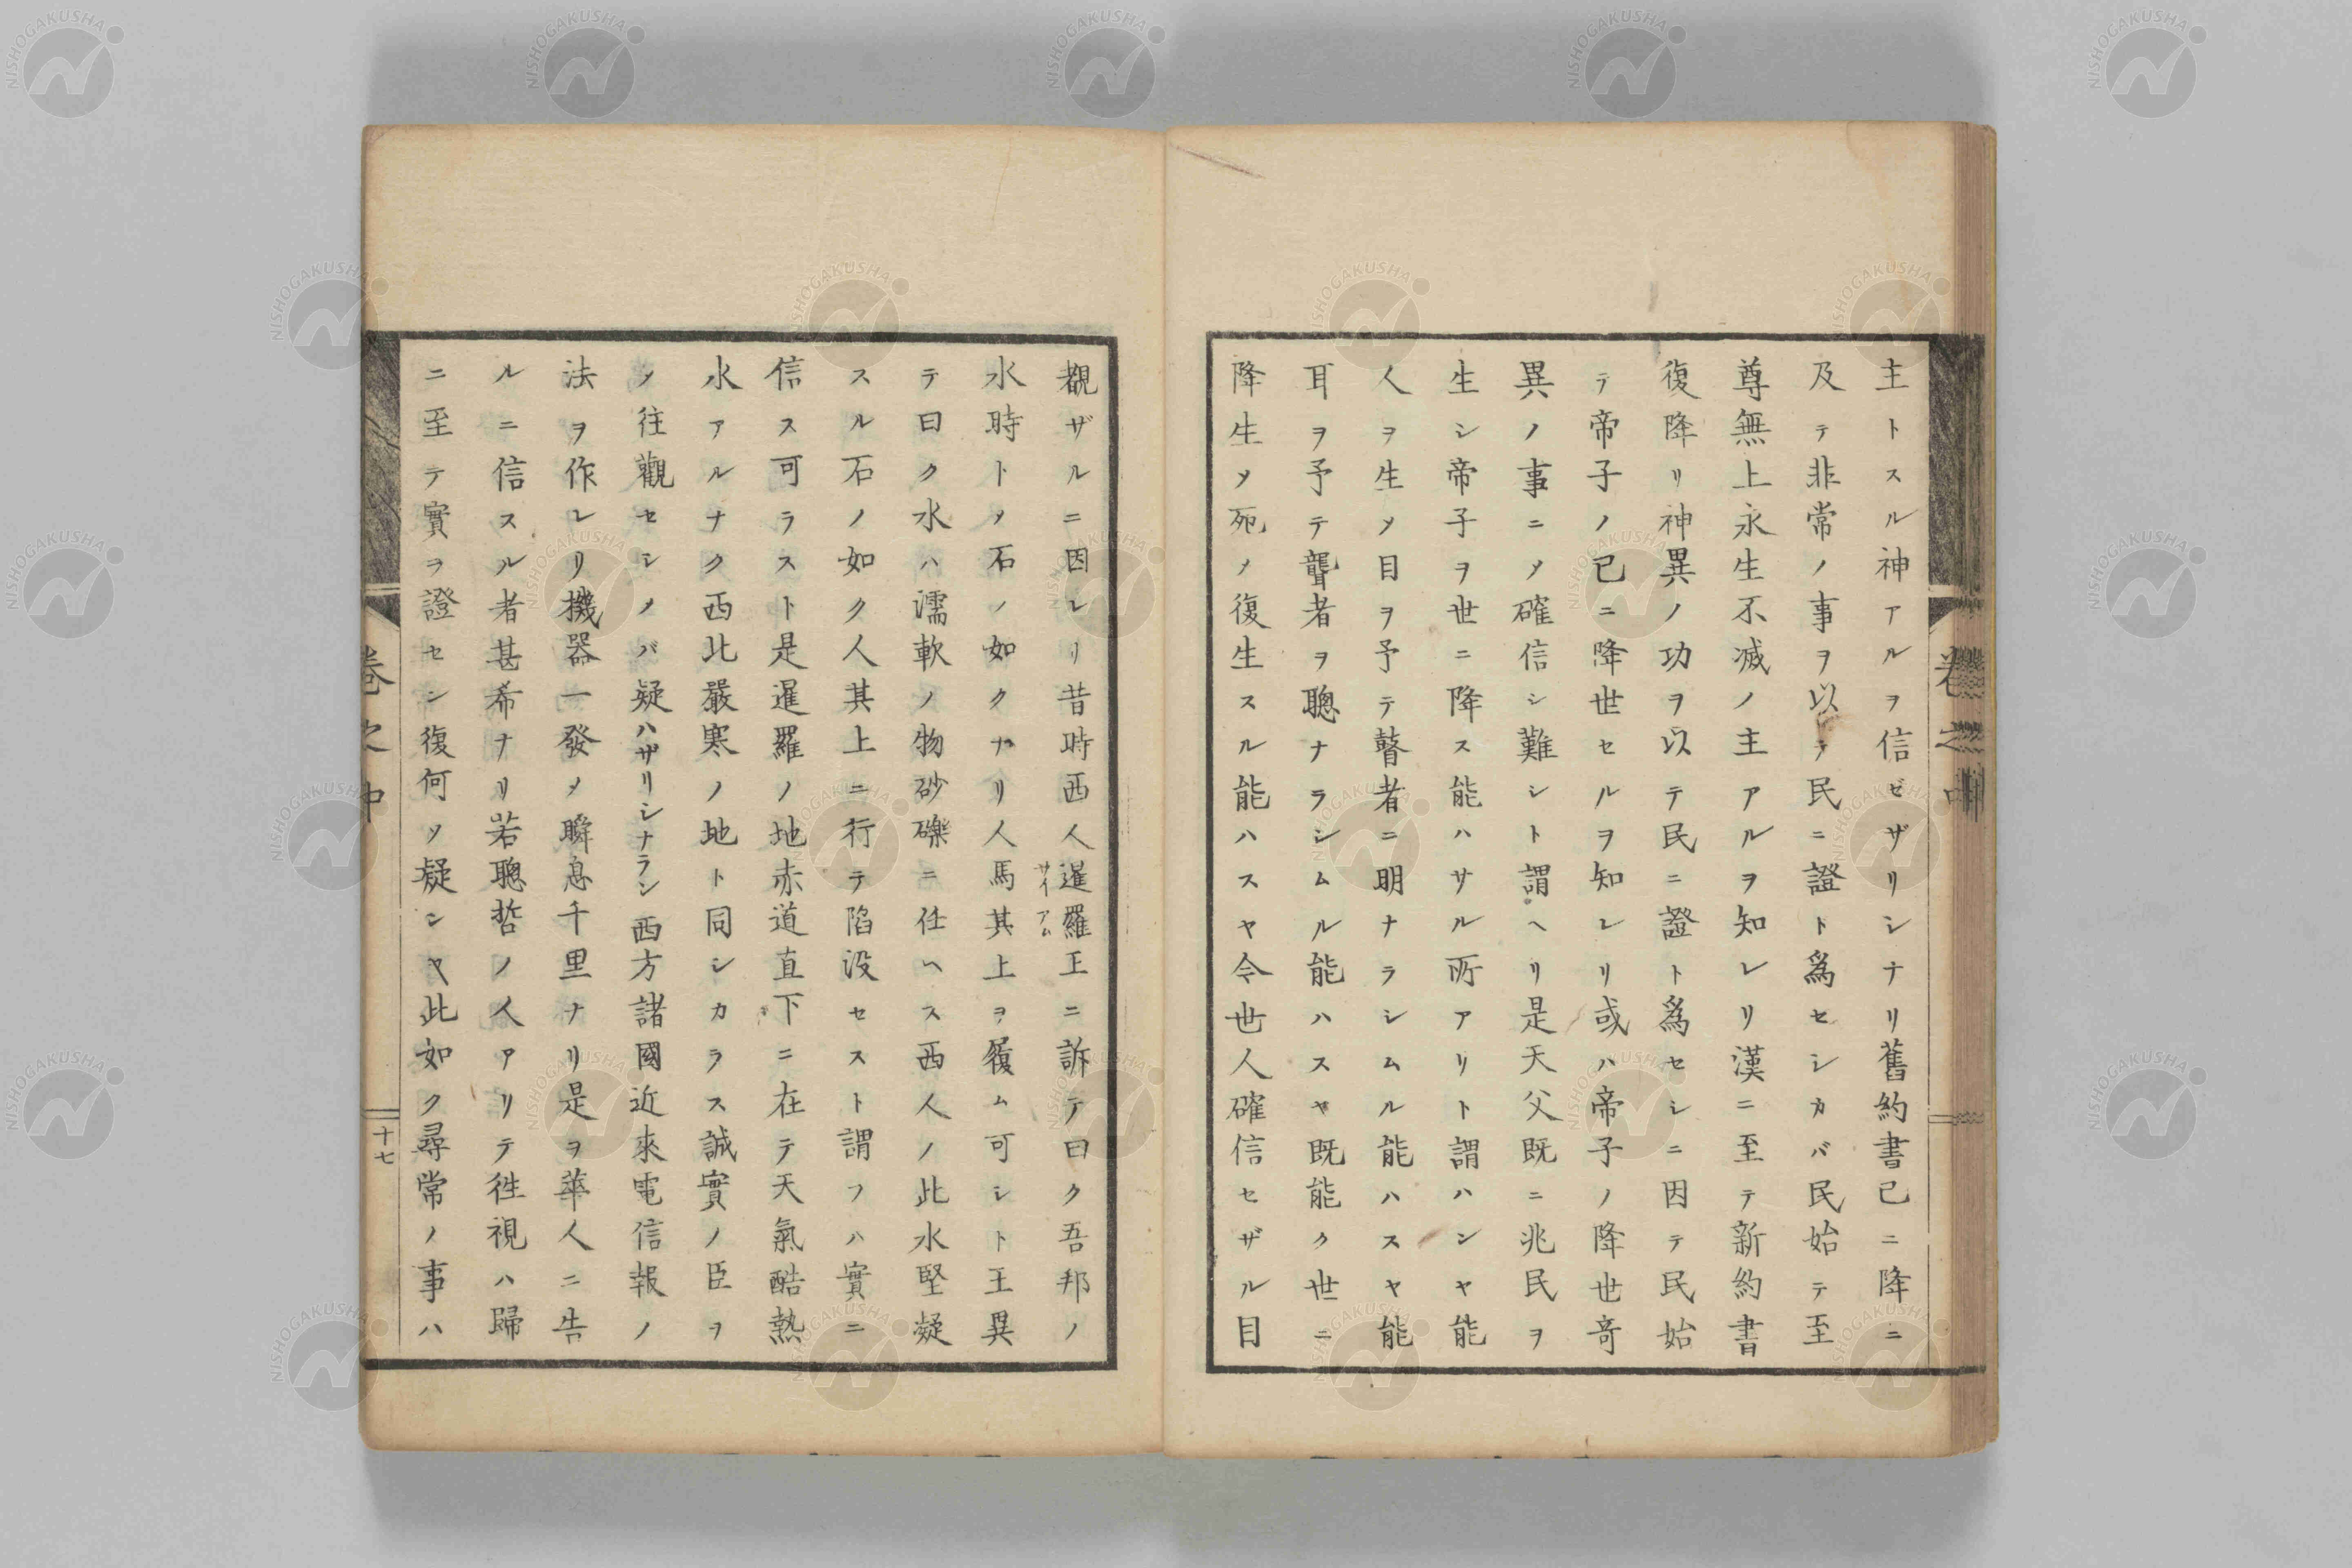 主トスル神アルヲ信ゼザリシナリ舊約書已ニ降ニ
及テ非常ノ事ヲ以テ民ニ證ト爲セシカバ民始テ至
尊無上永生不滅ノ主アルヲ知レリ漢ニ至テ新約書
復降リ神異ノ功ヲ以テ民ニ證ト爲セシニ因テ民始
テ帝子ノ已ニ降世セルヲ知レリ或ハ帝子ノ降世奇
異ノ事ニメ確信シ難シト謂ヘリ是天父既ニ兆民ヲ
生シ帝子ヲ世ニ降ス能ハサル所アリト謂ハンヤ能
人ヲ生メ目ヲ予テ瞽者ニ明ナラシムル能ハスヤ能
耳ヲ予テ聾者ヲ聰ナラシムル能ハスヤ既能ク世ニ
降生メ死メ復生スル能ハスヤ今世人確信セザル目
覩ザルニ因レリ昔時西人暹羅王ニ訴テ曰ク吾邦ノ
サイアム
水時トメ石ノ如クナリ人馬其上ヲ履ム可シト王異
テ曰ク水ハ濡軟ノ物砂礫ニ仕ヘス西人ノ此水堅凝
スル石ノ如ク人其上ニ行テ陷没セスト謂フハ實ニ
信ス可ラスト是暹羅ノ地赤道直下ニ在テ天氣酷熱
水アルナク西北嚴寒ノ地ト同シカラス誠實ノ臣ヲ
メ往觀セシメバ疑ハザリシナラン西方諸國近來電信報ノ
法ヲ作レリ機器一發メ瞬息千里ナリ是ヲ華人ニ告
ルニ信スル者甚希ナリ若聰哲ノ人アリテ徃視ハ歸
ニ至テ實ヲ證セン復何ソ疑ンヤ此如ク尋常ノ事ハ
卷之中
十七
卷之中